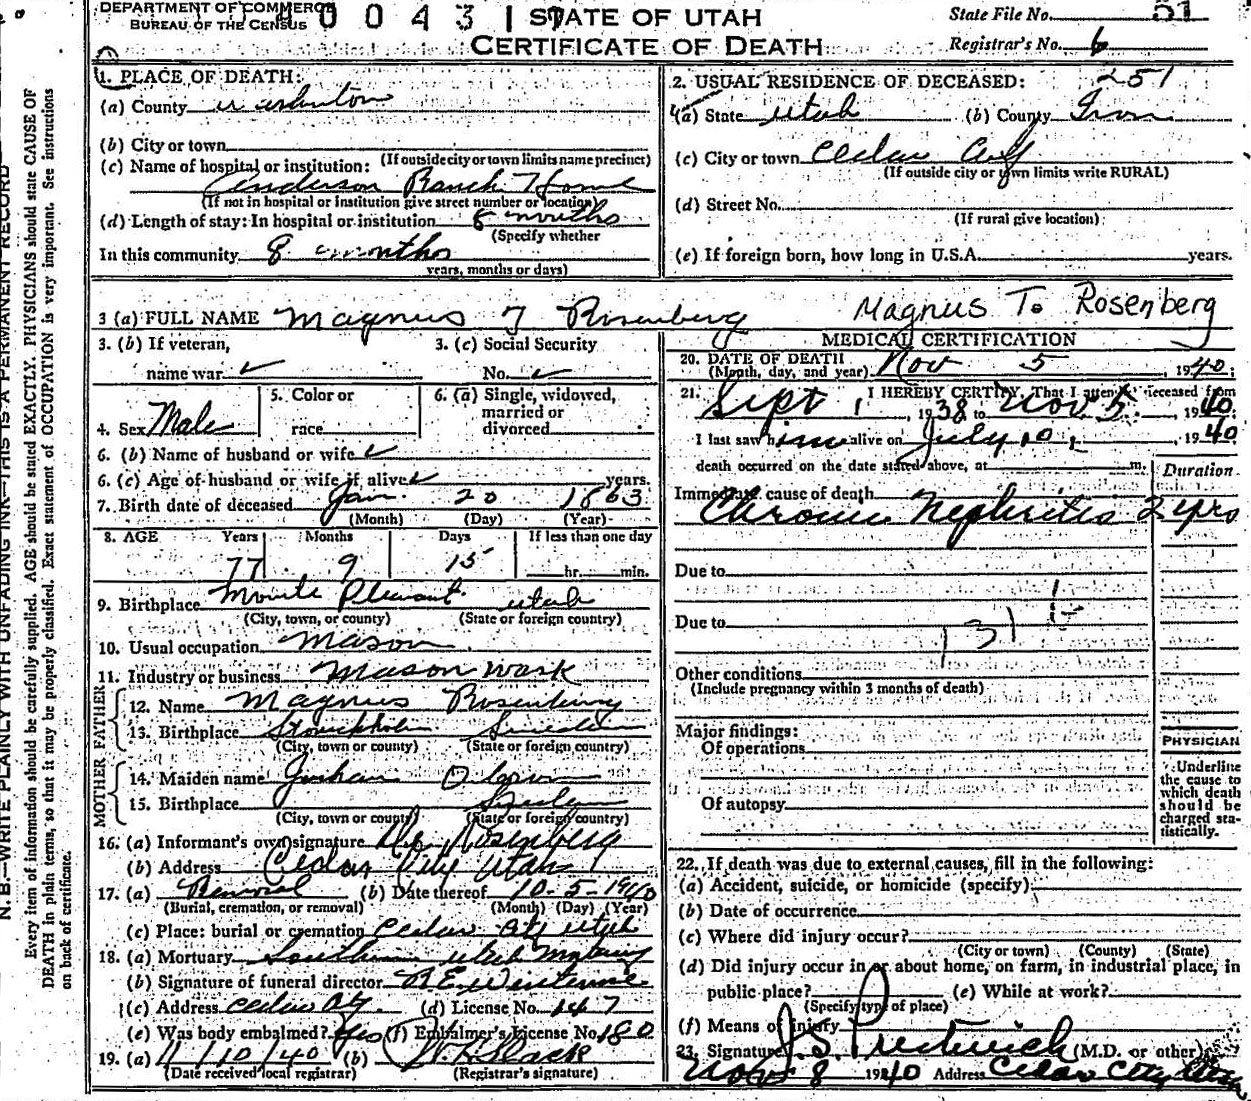 DEPARTMENT OF COMMERCE
BUREAU OF THE CENSUS
0 0 4 3 1
STATE OF UTAH
CERTIFICATE OF DEATH
State File No. 51
Registrar's No. 6
1. PLACE OF DEATH:
(a) County
(b) City or town
(If outside city or town limits name precinct)
(c) Name of hospital or institution:
Anderson Ranch Home
(If not in hospital or institution give street number or location)
(d) Length of stay: In hospital or institution 8 months
(Specify whether
In this community 8 months
years, months or days)
2. USUAL RESIDENCE OF DECEASED: 251
(a) State Utah (b) County Iron
(c) City or town Cedar City
(If outside city or town limits write RURAL)
(d) Street No.
(If rural give location)
(e) If foreign born, how long in U.S.A. years.
3 (a) FULL NAME Magnus T Rosenberg Magnus T. Rosenberg
3. (b) If veteran,
name war
3. (c) Social Security
No.
4. Sex Male
5. Color or
race
6. (a) Single, widowed,
married or
divorced
6. (b) Name of husband or wife
6. (c) Age of husband or wife if alive years.
7. Birth date of deceased Jan. 20 1863
(Month) (Day) (Year)
8. AGE Years Months Days If less than one day
77 9 15 hr. min.
9. Birthplace Mount Pleasant Utah
(City, town, or county) (State or foreign country)
10. Usual occupation Mason
11. Industry or business Mason Work
FATHER
12. Name Magnus Rosenberg
13. Birthplace Sweden
(City, town or county) (State or foreign country)
MOTHER
14. Maiden name
15. Birthplace Sweden
(City, town or county) (State or foreign country)
16. (a) Informant's own signature Rosenberg
(b) Address Cedar City Utah
17. (a) Removal (b) Date thereof 10-5-1940
(Burial, cremation, or removal) (Month) (Day) (Year)
(c) Place: burial or cremation Cedar City Utah
18. (a) Mortuary Southern Utah Mortuary
(b) Signature of funeral director
(c) Address Cedar City (d) License No. 147
(e) Was body embalmed? Yes (f) Embalmer's License No. 180
19. (a) 11/10/40 (b)
(Date received local registrar) (Registrar's signature)
MEDICAL CERTIFICATION
20. DATE OF DEATH
(Month, day, and year) Nov 5, 1940;
21. I HEREBY CERTIFY, That I attended deceased from
Sept 1, 1938 to Nov 5, 1940
I last saw him alive on July 10, 1940
death occurred on the date stated above, at m.
Duration
Immediate cause of death
Chronic Nephritis 2 yrs
Due to
Due to
131
Other conditions
(Include pregnancy within 3 months of death)
Major findings:
Of operations
Of autopsy
PHYSICIAN
Underline
the cause to
which death
should be
charged sta-
tistically.
22. If death was due to external causes, fill in the following:
(a) Accident, suicide, or homicide (specify)
(b) Date of occurrence
(c) Where did injury occur?
(City or town) (County) (State)
(d) Did injury occur in or about home, on farm, in industrial place, in
public place? (e) While at work?
(Specify type of place)
(f) Means of injury
23. Signature J. S. Prestwich (M.D. or other)
Nov 8 1940 Address Cedar City Utah
N. B.—WRITE PLAINLY WITH UNFADING INK—THIS IS A PERMANENT RECORD
Every item of information should be carefully supplied. AGE should be stated EXACTLY. PHYSICIANS should state CAUSE OF
DEATH in plain terms, so that it may be properly classified. Exact statement of OCCUPATION is very important. See instructions
on back of certificate.